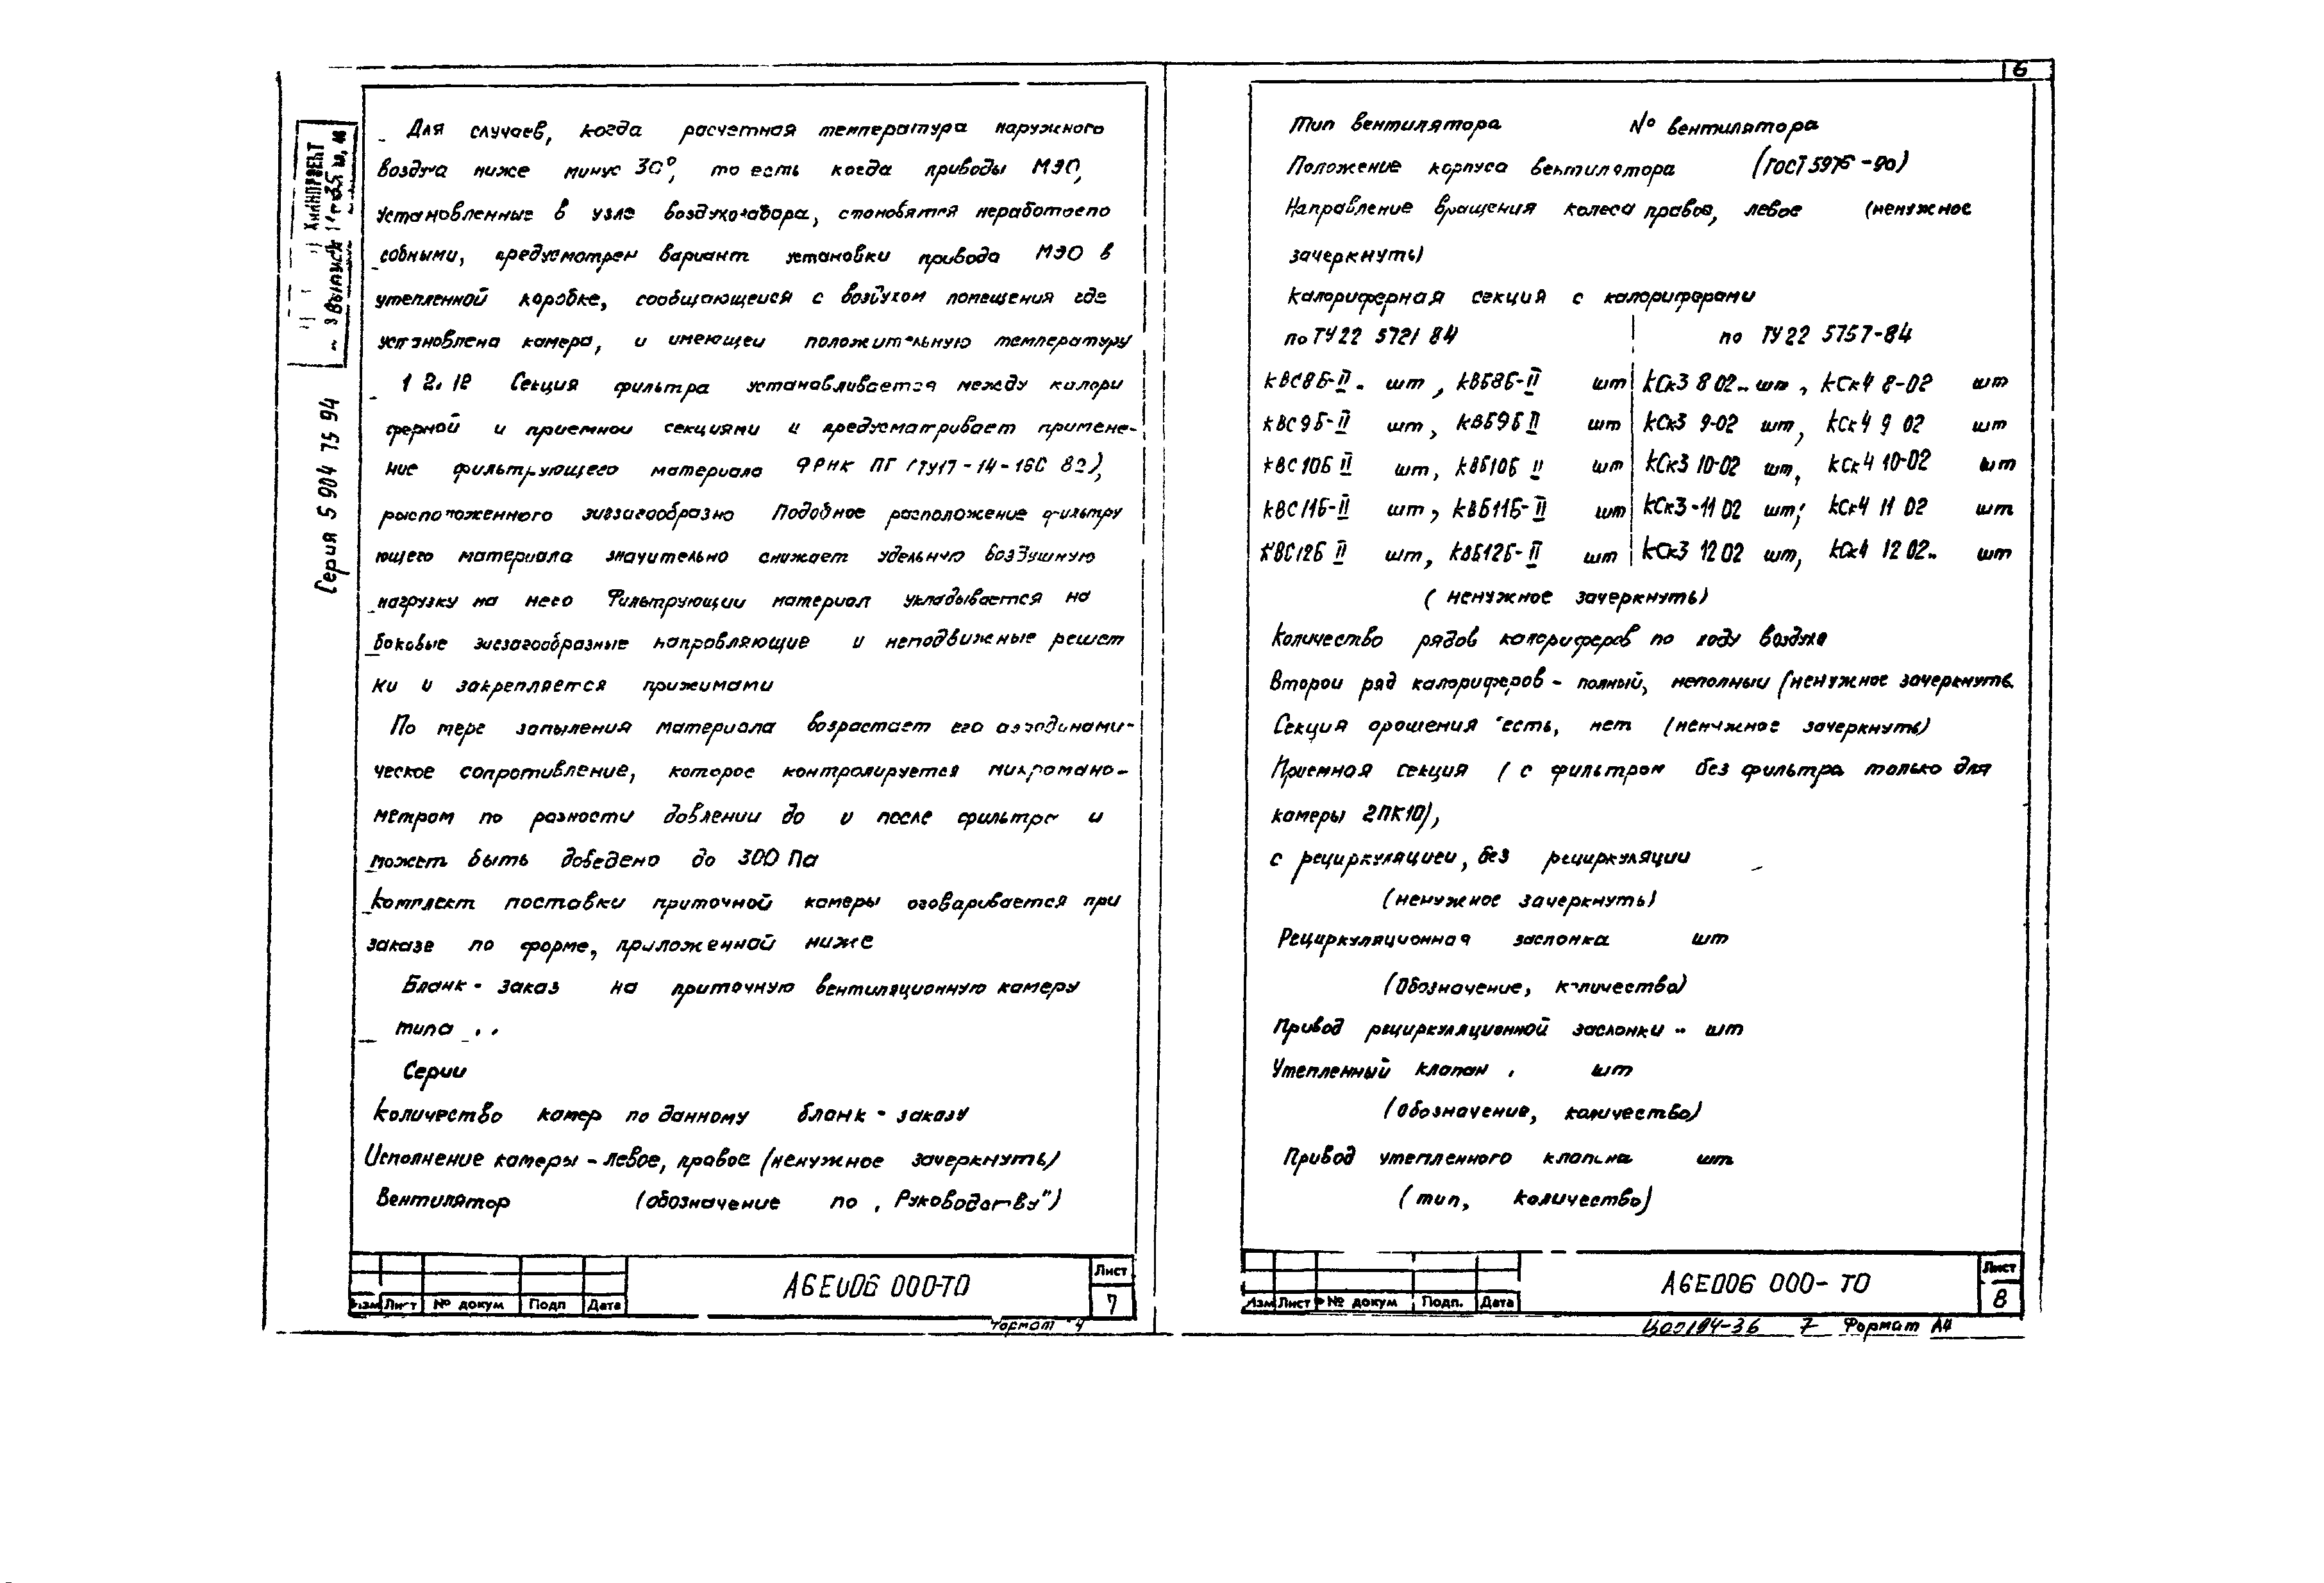 6
Серия 5 904 75 94
Для случаев, когда расчетная температура наружного
воздуха ниже минус 30°, то есть когда приводы МЭО,
установленные в узле воздухозабора, становятся неработоспо
собными, предусмотрен вариант установки привода МЭО в
утепленной коробке, сообщающейся с воздухом помещения где
установлена камера, и имеющей положительную температуру
1 2. 12 Секция фильтра устанавливается между калори
ферной и приемной секциями и предусматривает примене-
ние фильтрующего материала ФРНК ПГ (ТУ17-14-
расположенного зигзагообразно Подобное расположение фильтру
ющего материала значительно снижает удельную воздушную
нагрузку на него Фильтрующий материал укладывается на
боковые зигзагообразные направляющие и неподвижные решет
ки и закрепляется прижимами
По мере запыления материала возрастает его аэродинами-
ческое сопротивление, которое контролируется микромано-
метром по разности давлении до и после фильтра и
может быть доведено до 300 Па
Комплект поставки приточной камеры оговаривается при
заказе по форме, приложенной ниже
Бланк - заказ на приточную вентиляционную камеру
типа . .
Серии
Количество камер по данному бланк - заказу
Исполнение камеры - левое, правое (ненужное зачеркнуть)
Вентилятор (обозначение по „Руководству")
А6Е006 000-ТО
Лист
7
Изм Лист № докум Подп Дата
Формат 4
Тип вентилятора № вентилятора
Положение корпуса вентилятора (ГОСТ 5976-90)
Направление вращения колеса правое, левое (ненужное
зачеркнуть)
Калориферная секция с калориферами
по ТУ 22 5721 84 по ТУ 22 5757-84
КВС8Б-II. шт, КВБ8Б-II шт КСк3 8 02.. шт, КСк4 8-02 шт
КВС9Б-II шт, КВБ9Б II шт КСк3 9-02 шт, КСк4 9 02 шт
КВС10Б II шт, КВБ10Б II шт КСк3 10-02 шт, КСк4 10-02 шт
КВС11Б-II шт, КВБ11Б-II шт КСк3-11 02 шт; КСк4 11 02 шт
КВС12Б II шт, КВБ12Б-II шт КСк3 12 02 шт, КСк4 12 02.. шт
(ненужное зачеркнуть)
Количество рядов калориферов по ходу воздуха
Второй ряд калориферов - полный, неполный (ненужное зачеркнуть
Секция орошения есть, нет (ненужное зачеркнуть)
Приемная секция (с фильтром без фильтра только для
камеры 2ПК10),
с рециркуляцией, без рециркуляции
(ненужное зачеркнуть)
Рециркуляционная заслонка шт
(Обозначение, количество)
Привод рециркуляционной заслонки .. шт
Утепленный клапан . шт
(обозначение, количество)
Привод утепленного клапана шт
(тип, количество)
А6Е006 000- ТО
Лист
8
Изм Лист № докум Подп. Дата
7 Формат А4